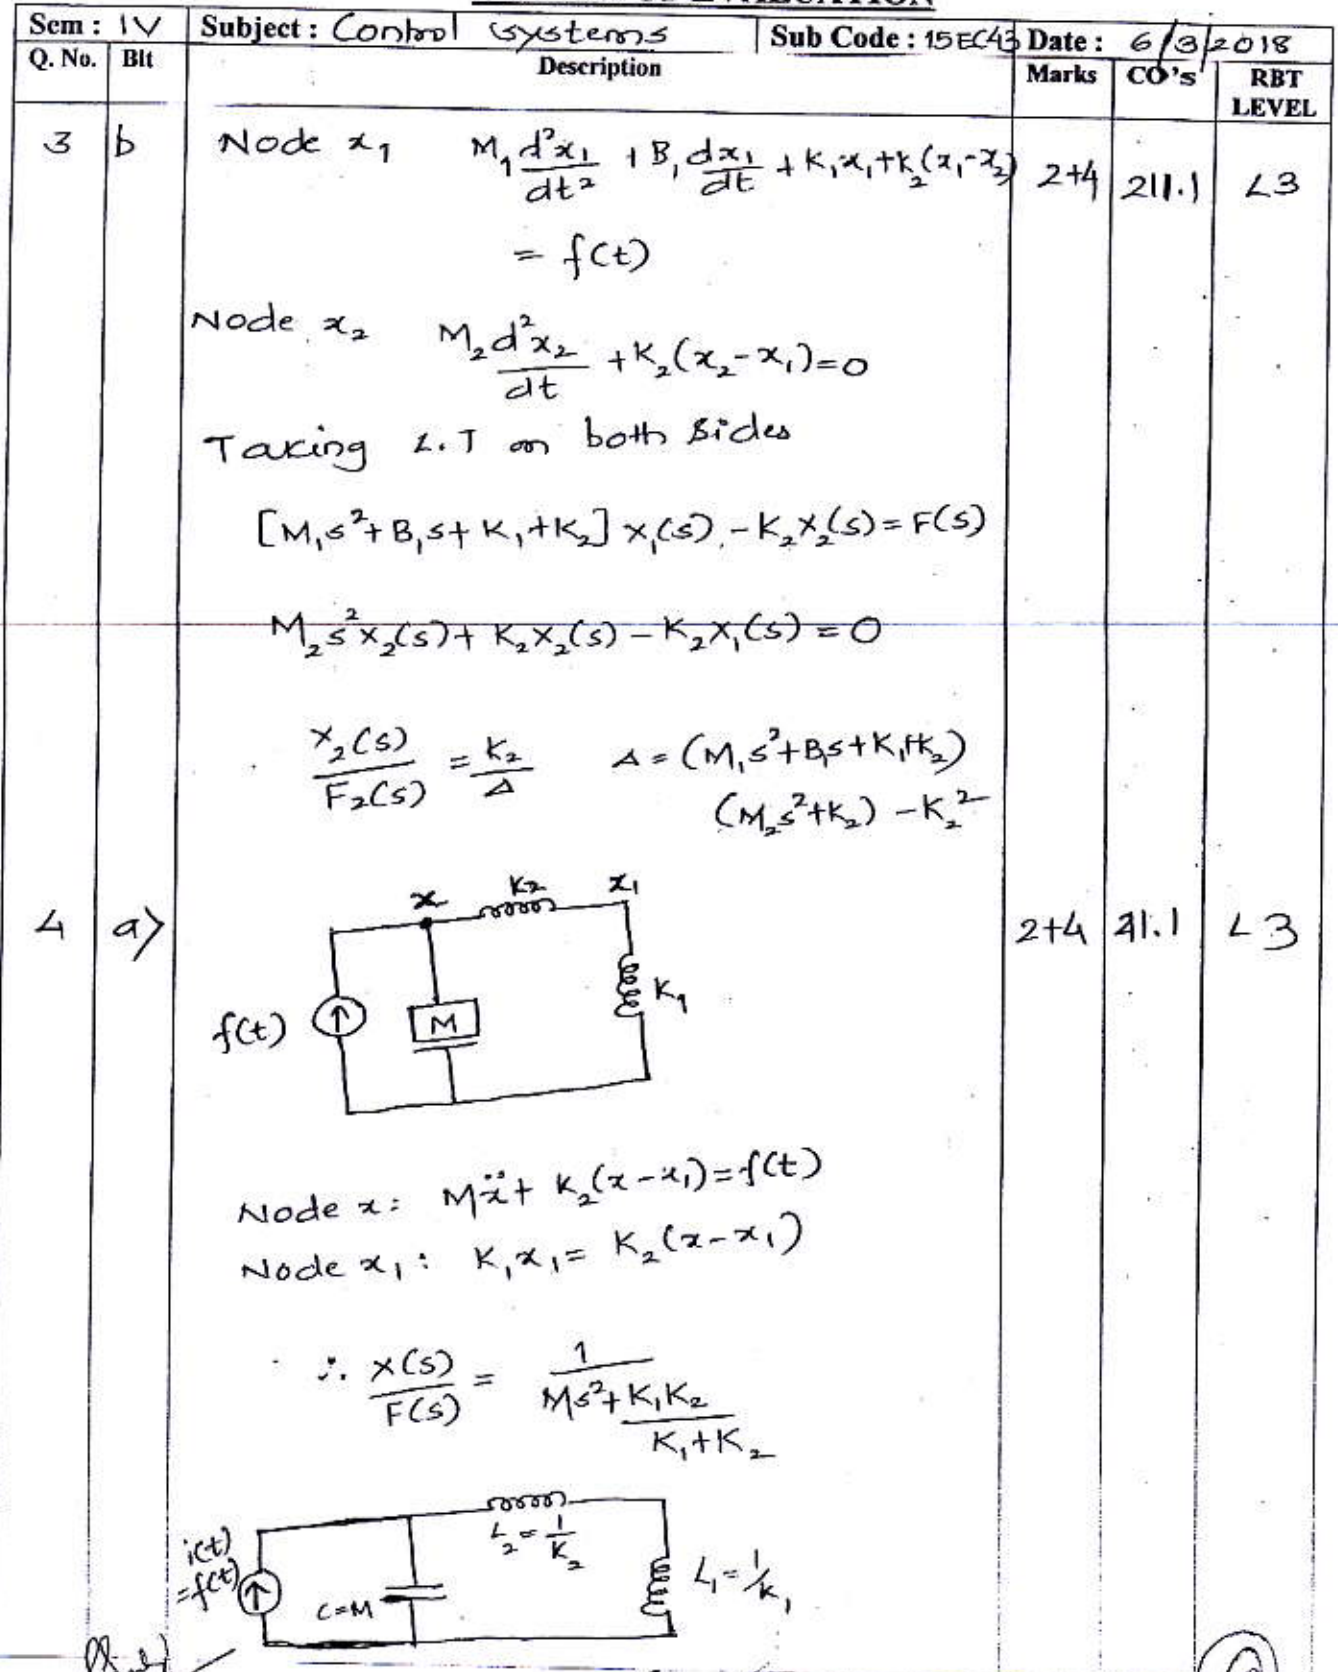 EVALUATION
Sem : IV Subject : Control systems Sub Code : 15EC43 Date : 6/3/2018
Q. No. Bit Description Marks CO's RBT LEVEL
3 b Node x₁ M₁ d²x₁/dt² + B₁ dx₁/dt + K₁x₁ + K₂(x₁-x₂) 2+4 211.1 L3
= f(t)
Node x₂ M₂ d²x₂/dt + K₂(x₂-x₁)=0
Taking L.T on both sides
[M₁s²+B₁s+K₁+K₂] X₁(s) - K₂X₂(s) = F(s)
M₂s²X₂(s) + K₂X₂(s) - K₂X₁(s) = 0
X₂(s)/F₂(s) = K₂/Δ Δ = (M₁s²+B₁s+K₁+K₂)
(M₂s²+K₂) - K₂²
4 a) 2+4 21.1 L3
x K₂ x₁
f(t) M K₁
Node x: Mẍ + K₂(x-x₁) = f(t)
Node x₁: K₁x₁ = K₂(x-x₁)
∴ X(s)/F(s) = 1/(Ms² + K₁K₂/(K₁+K₂))
i(t) = f(t) C=M L₂ = 1/K₂ L₁ = 1/K₁